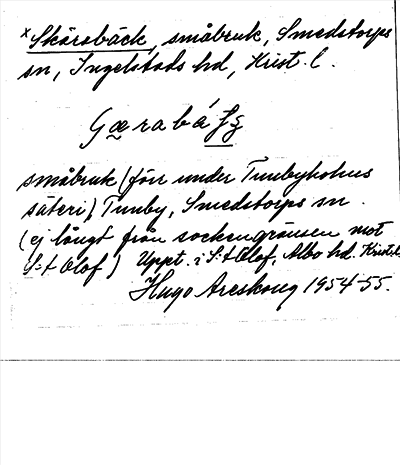 x Skärsbäck, småbruk, Smedstorps
sn, Ingelstads hd, Krist. l.
småbruk (förr under Tunbyholms
säteri) Tunby, Smedstorps sn.
(ej långt från sockengränsen mot
S:t Olof) Uppt. i S:t Olof, Albo hd. Krist.l.
Hugo Areskoug 1954-55.